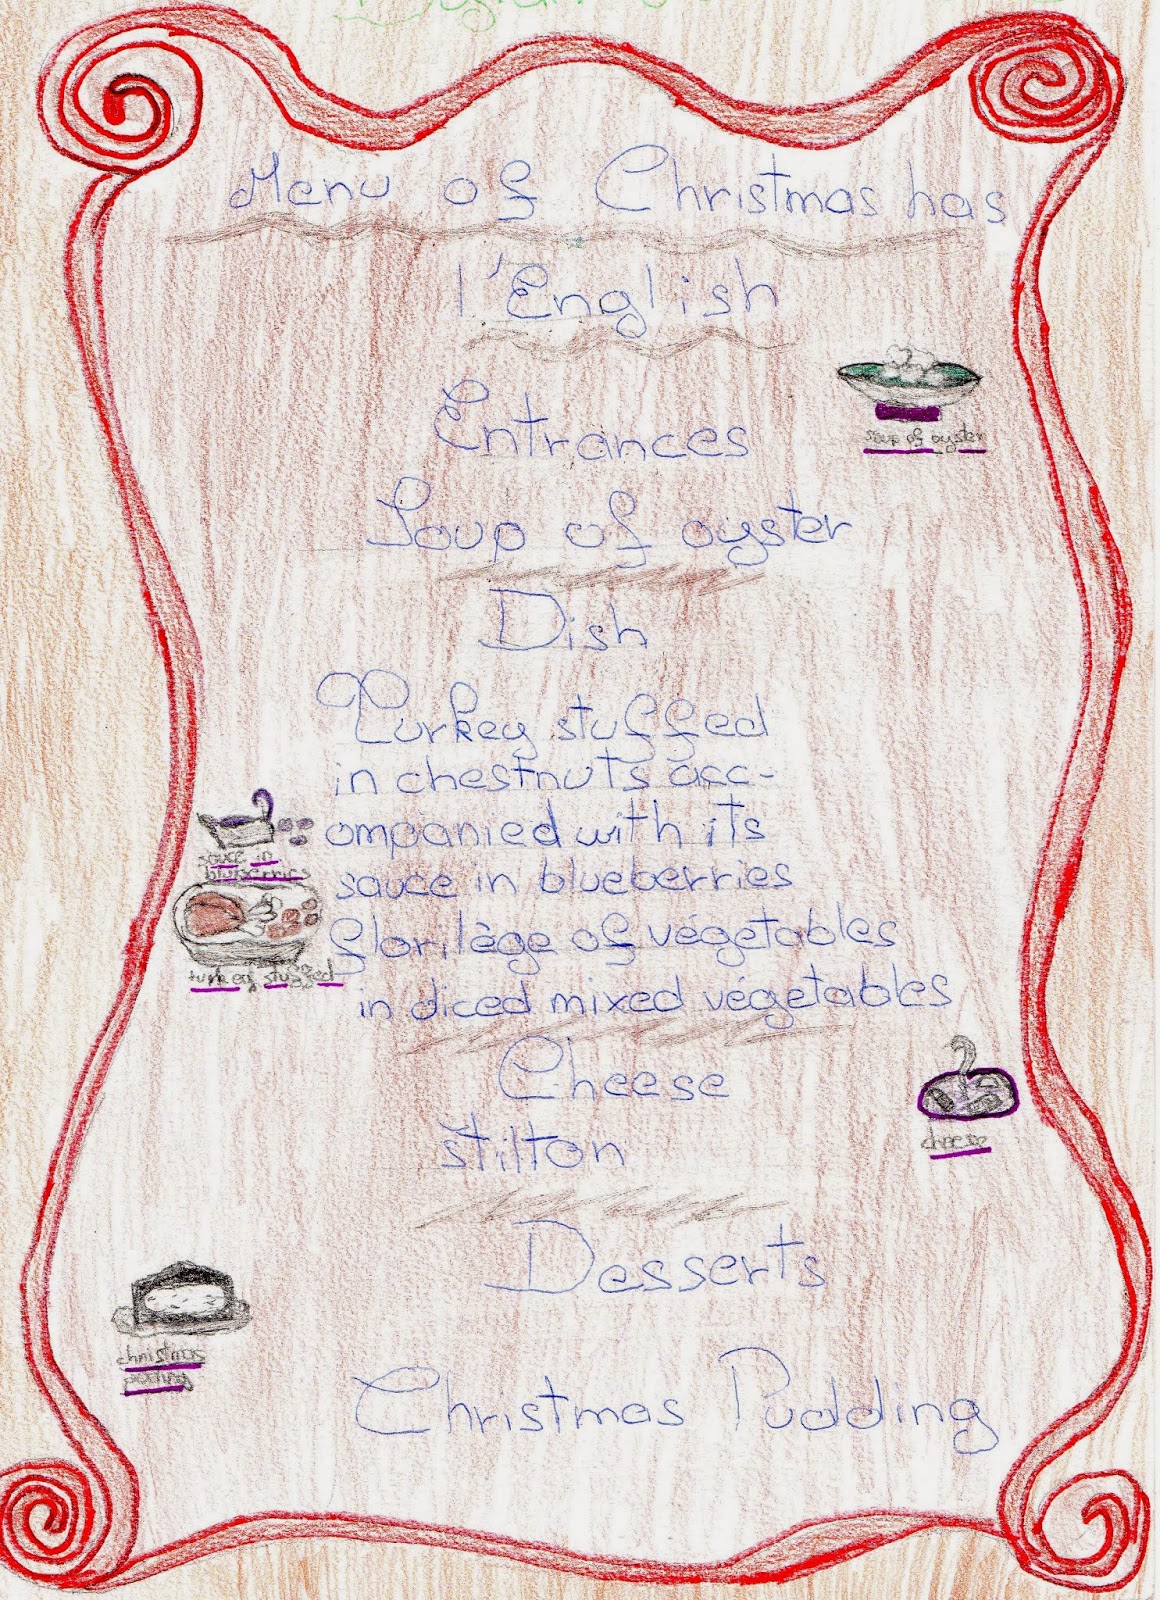 Menu of Christmas has
l'English
Entrances
soup of oyster
Soup of oyster
Dish
Turkey stuffed
in chestnuts acc-
ompanied with its
sauce in blueberries
sauce in
bluberries
florilège of végetables
turkey stuffed
in diced mixed végetables
Cheese
cheese
stilton
Desserts
christmas
puding
Christmas Pudding